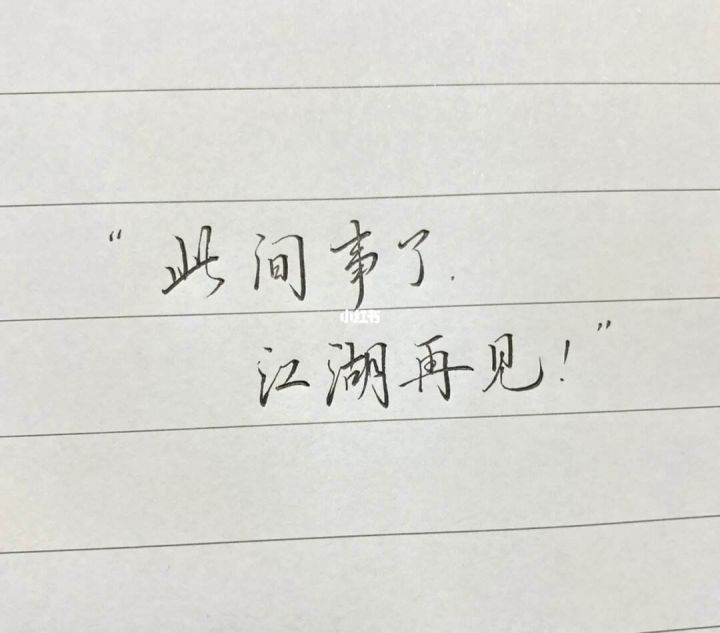 “此间事了.
小红书
江湖再见！”